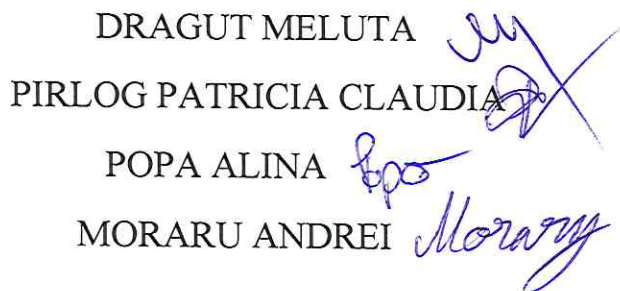 DRAGUT MELUTA
PIRLOG PATRICIA CLAUDIA
POPA ALINA
MORARU ANDREI Moraru